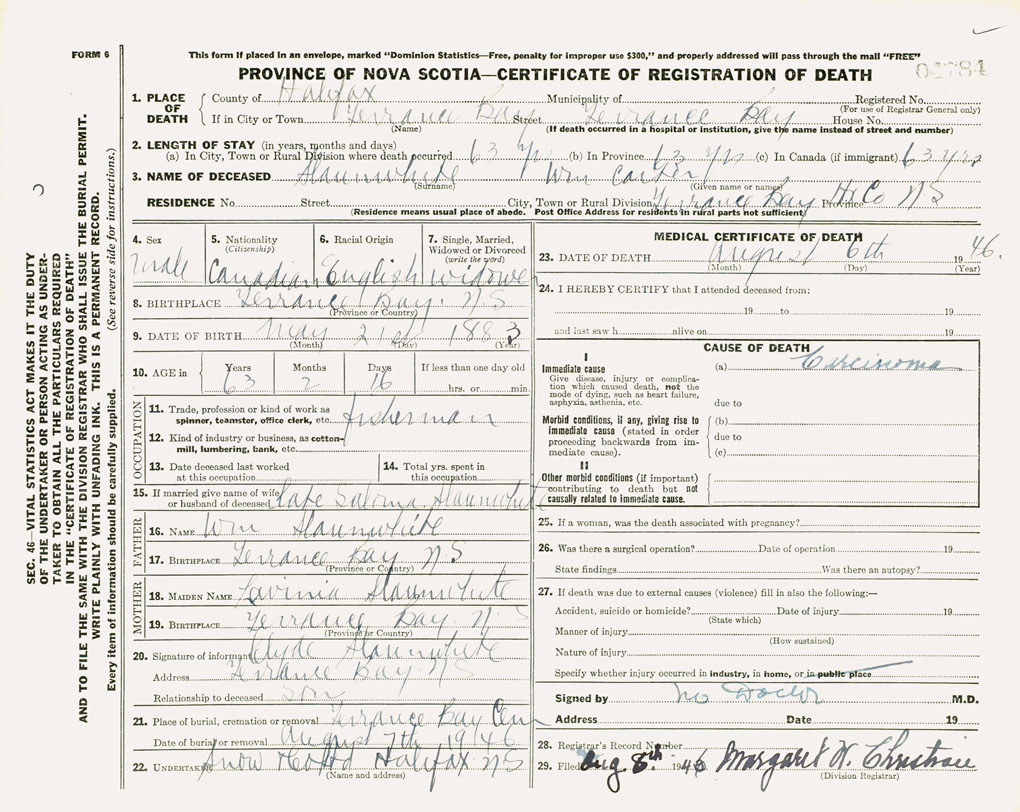 FORM 6
This form if placed in an envelope, marked "Dominion Statistics—Free, penalty for improper use $300," and properly addressed will pass through the mail "FREE"
PROVINCE OF NOVA SCOTIA—CERTIFICATE OF REGISTRATION OF DEATH
1. PLACE OF DEATH
County of Halifax Municipality of Registered No.
(For use of Registrar General only)
If in City or Town Terrance Bay Street Terrance Bay House No.
(Name) (If death occurred in a hospital or institution, give the name instead of street and number)
2. LENGTH OF STAY (in years, months and days)
(a) In City, Town or Rural Division where death occurred 63 yrs (b) In Province 63 yrs (c) In Canada (if immigrant) 63 yrs
3. NAME OF DECEASED Slaunwhite Wm
(Surname) (Given name or names)
RESIDENCE No. Street City, Town or Rural Division Terrance Bay Province Hx Co N S
(Residence means usual place of abode. Post Office Address for residents in rural parts not sufficient)
4. Sex
male
5. Nationality
(Citizenship)
Canadian
6. Racial Origin
English
7. Single, Married, Widowed or Divorced
(write the word)
widower
8. BIRTHPLACE Terrance Bay. N S
(Province or Country)
9. DATE OF BIRTH May 21st 1883
(Month) (Day) (Year)
10. AGE in
Years
63
Months
2
Days
16
If less than one day old
hrs. or min.
OCCUPATION
11. Trade, profession or kind of work as spinner, teamster, office clerk, etc. fisherman
12. Kind of industry or business, as cotton-mill, lumbering, bank, etc.
13. Date deceased last worked at this occupation
14. Total yrs. spent in this occupation
15. If married give name of wife or husband of deceased Slaunwhite
FATHER
16. NAME Wm Slaunwhite
17. BIRTHPLACE Terrance Bay N S
(Province or Country)
MOTHER
18. MAIDEN NAME Lavinia Slaunwhite
19. BIRTHPLACE Terrance Bay. N. S
(Province or Country)
20. Signature of informant Clyde Slaunwhite
Address Terrance Bay. N S
Relationship to deceased son
21. Place of burial, cremation or removal Terrance Bay Cem
Date of burial or removal August 7th 1946
22. UNDERTAKER Snow Halifax N S
(Name and address)
MEDICAL CERTIFICATE OF DEATH
23. DATE OF DEATH August 6th 1946.
(Month) (Day) (Year)
24. I HEREBY CERTIFY that I attended deceased from:
19 to 19
and last saw h alive on 19
CAUSE OF DEATH
I
Immediate cause
Give disease, injury or complication which caused death, not the mode of dying, such as heart failure, asphyxia, asthenia, etc.
(a) Carcinoma
due to
Morbid conditions, if any, giving rise to immediate cause (stated in order proceeding backwards from immediate cause).
(b)
due to
(c)
II
Other morbid conditions (if important) contributing to death but not causally related to immediate cause.
25. If a woman, was the death associated with pregnancy?
26. Was there a surgical operation? Date of operation 19
State findings Was there an autopsy?
27. If death was due to external causes (violence) fill in also the following:—
Accident, suicide or homicide? Date of injury 19
(State which)
Manner of injury
(How sustained)
Nature of injury
Specify whether injury occurred in industry, in home, or in public place
Signed by No Doctor M.D.
Address Date 19
28. Registrar's Record Number
29. Filed Aug. 8th 1946 Margaret W. Christian
(Division Registrar)
SEC. 46—VITAL STATISTICS ACT MAKES IT THE DUTY
OF THE UNDERTAKER OR PERSON ACTING AS UNDER-
TAKER TO OBTAIN ALL THE PARTICULARS REQUIRED
IN THE "CERTIFICATE OF REGISTRATION OF DEATH"
AND TO FILE THE SAME WITH THE DIVISION REGISTRAR WHO SHALL ISSUE THE BURIAL PERMIT.
WRITE PLAINLY WITH UNFADING INK. THIS IS A PERMANENT RECORD.
Every item of information should be carefully supplied. (See reverse side for instructions.)